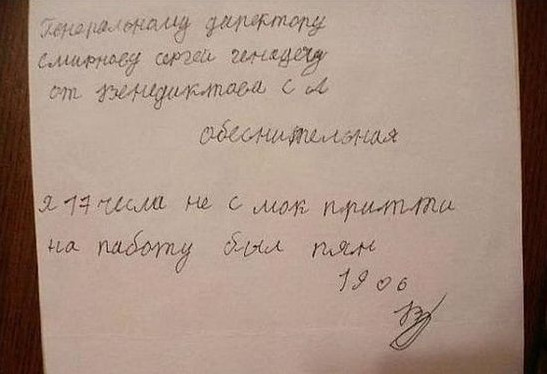 Генеральному директору
Смирнову сергей генадечу
от Венедиктова С А
обеснительная
я 17 числа не с мок притти
на работу был пян
19 06